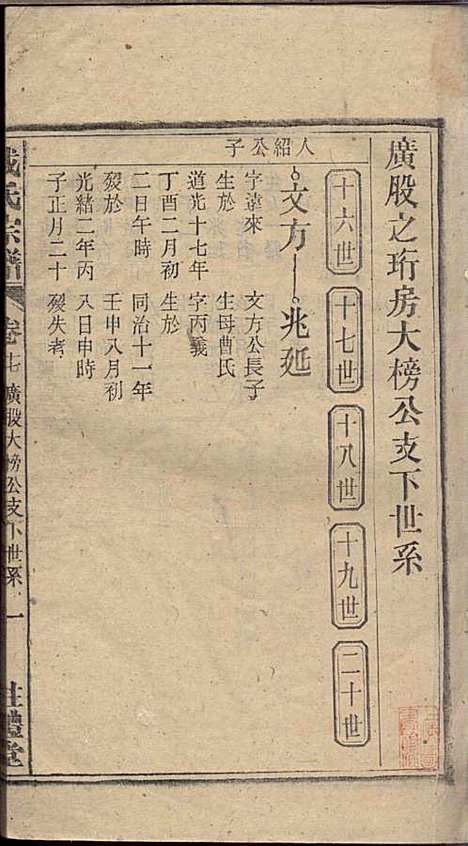 廣股之珩房大榜公支下世系
十六世 十七世 十八世 十九世 二十世
人紹公子
文方 兆延
字遠來 文方公長子
生於 生母曹氏
道光十七年 字丙義
丁酉二月初 生於
二日午時 同治十一年
歿於 壬申八月初
光緒二年丙 八日申時
子正月二十 歿失考
氏宗譜 卷七 廣股大榜公支下世系 一 禮堂